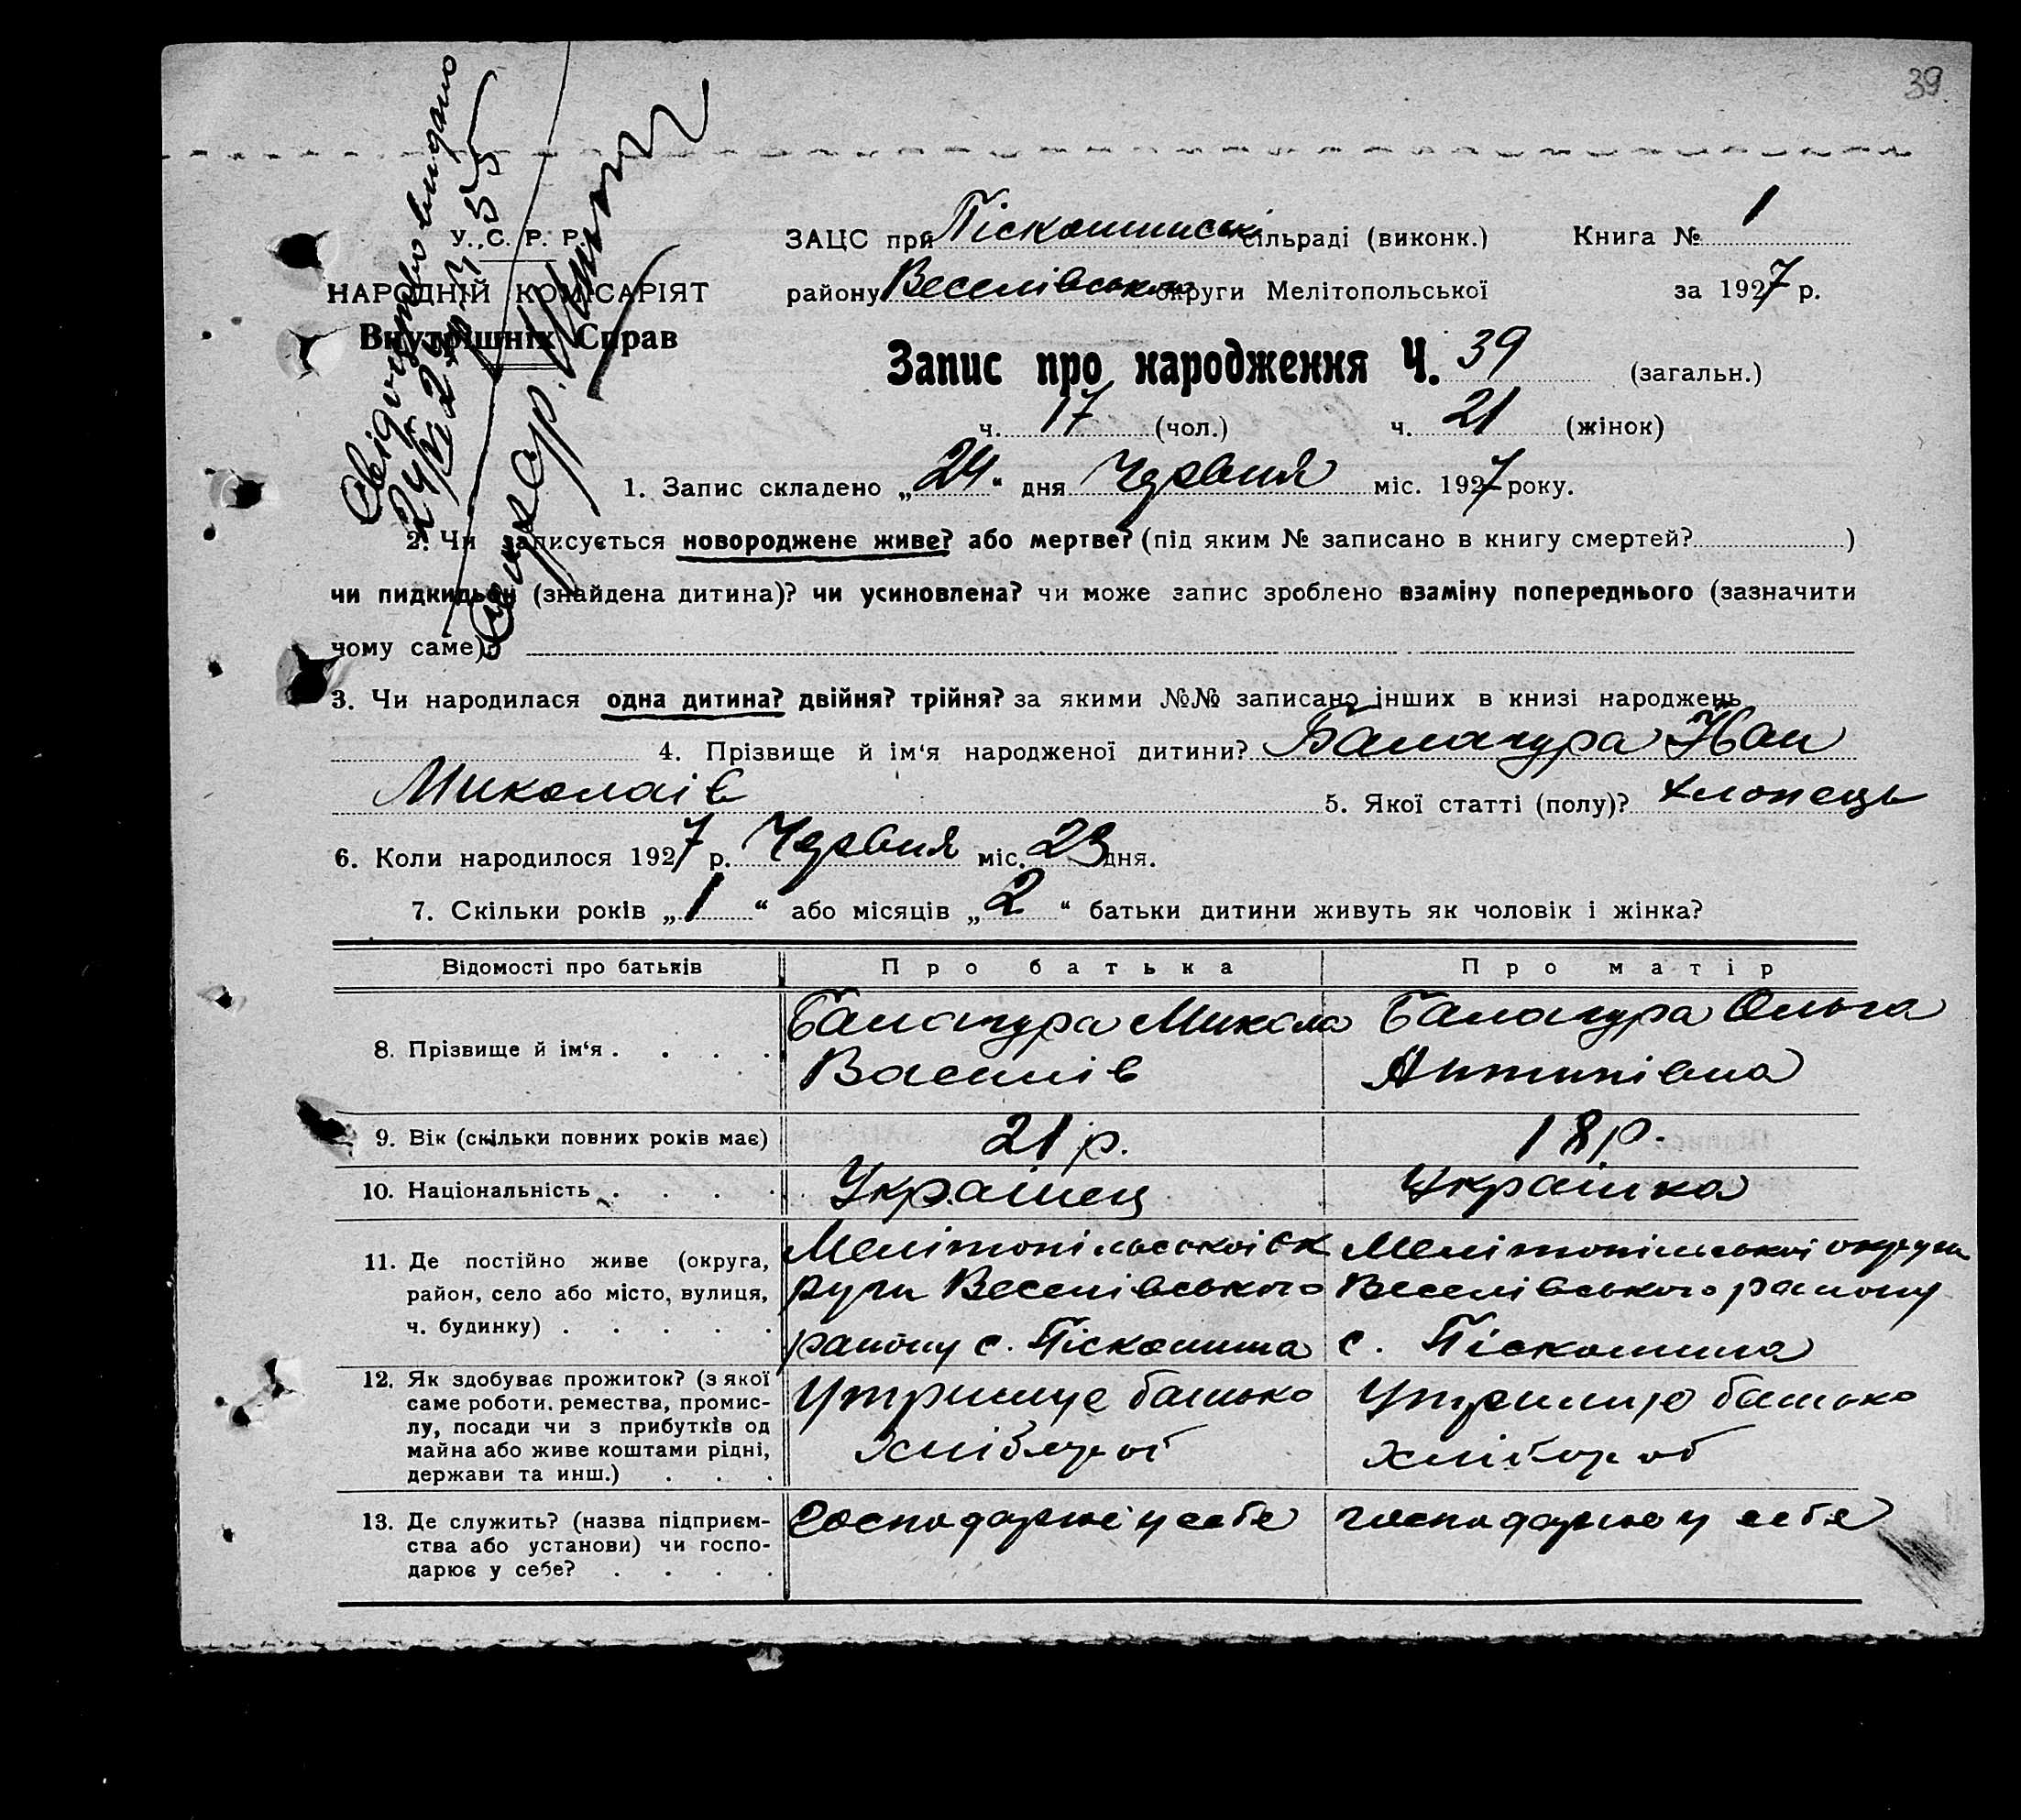 39
Свідоцтво видано
У. С. Р. Р.
НАРОДНІЙ КОМІСАРІЯТ
Внутрішніх Справ
ЗАЦС при Піскошинськ сільраді (виконк.) Книга № 1
району Веселівськом округи Мелітопольської за 1927 р.
Запис про народження Ч. 39 (загальн.)
ч. 17 (чол.) ч. 21 (жінок)
1. Запис складено „24“ дня Червня міс. 1927 року.
2. Чи записується новороджене живе? або мертве? (під яким № записано в книгу смертей? )
чи пидкидьок (знайдена дитина)? чи усиновлена? чи може запис зроблено взаміну попереднього (зазначити
чому саме)?
3. Чи народилася одна дитина? двійня? трійня? за якими №№ записано інших в книзі народжень
4. Прізвище й ім‘я народженої дитини? Балачура Иван
Миколаів 5. Якої статті (полу)? хлопець
6. Коли народилося 1927 р. Червня міс. 23 дня.
7. Скільки років „1“ або місяців „2“ батьки дитини живуть як чоловік і жінка?
Відомості про батьків Про батька Про матір
8. Прізвище й ім‘я . . . . Балачура Микола Балачура Ольга
Василів Антипівна
9. Вік (скільки повних років має) 21 р. 18 р.
10. Національність . . . . Украінец Украінка
11. Де постійно живе (округа, Мелітопільськоі ок Мелітопільськоі округи
район, село або місто, вулиця, руги Веселівського Веселівського району
ч. будинку) . . . . . району с. Піскошина с. Піскошина
12. Як здобуває прожиток? (з якої Утримує батько Утримую батько
саме роботи, ремества, промис-
лу, посади чи з прибутків од хлібороб хлібороб
майна або живе коштами рідні,
держави та инш.) . . .
13. Де служить? (назва підприєм- Господарює у себе господарює у себе
ства або установи) чи госпо-
дарює у себе? . . . .